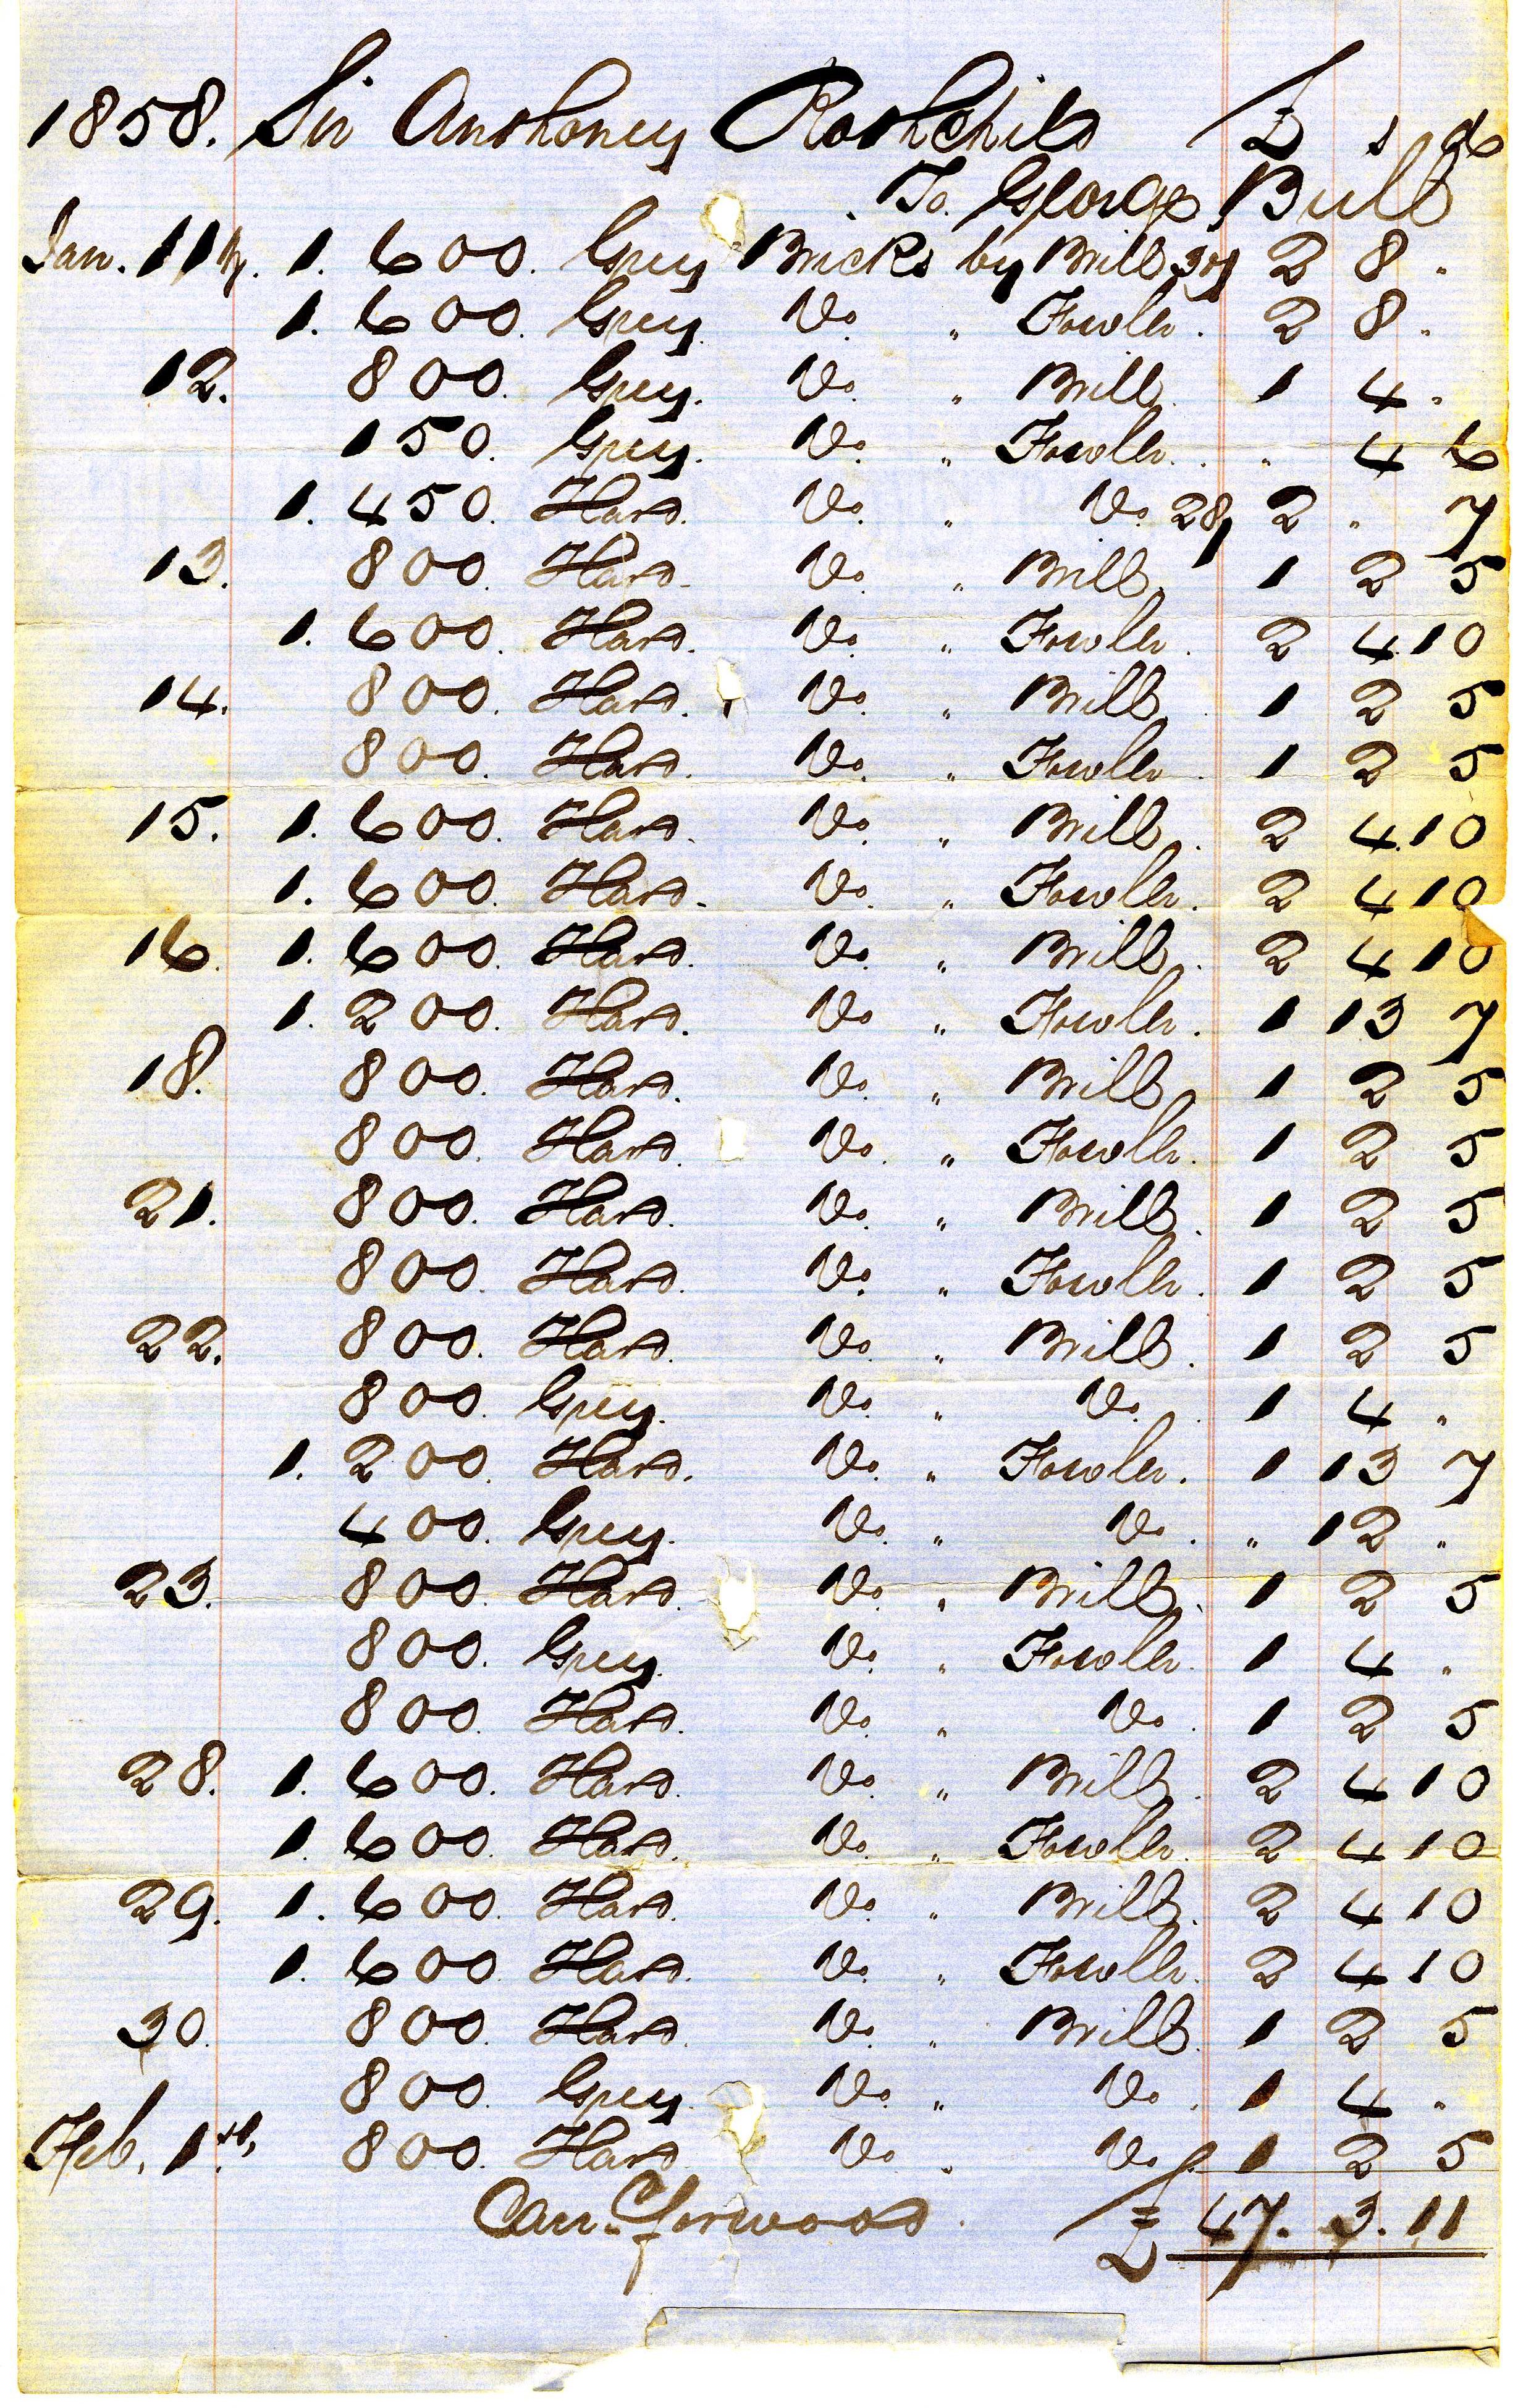 1858. Sir Anthoney Rothchild £ s d
To. George Bull
Jan. 11th. 1.600. Grey Bricks by Brill 30/ 2 8 "
1.600. Grey. Do. " Fowler. 2 8 "
12. 800. Grey. Do. " Brill. 1 4 "
150. Grey. Do. " Fowler. " 4 6
1.450. Hard. Do. " Do. 28/ 2 " 7
13. 800. Hard. Do. " Brill. 1 2 5
1.600. Hard. Do. " Fowler. 2 4 10
14. 800. Hard. Do. " Brill. 1 2 5
800. Hard. Do. " Fowler. 1 2 5
15. 1.600. Hard. Do. " Brill. 2 4 10
1.600. Hard. Do. " Fowler. 2 4 10
16. 1.600. Hard. Do. " Brill. 2 4 10
1.200. Hard. Do " Fowler. 1 13 7
18. 800. Hard. Do. " Brill. 1 2 5
800. Hard. Do. " Fowler. 1 2 5
21. 800. Hard. Do. " Brill. 1 2 5
800. Hard. Do. " Fowler. 1 2 5
22. 800. Hard. Do. " Brill. 1 2 5
800. Grey. Do. " Do. 1 4 "
1.200. Hard. Do. " Fowler. 1 13 7
400. Grey. Do. " Do. " 12 "
23. 800. Hard. Do. " Brill. 1 2 5
800. Grey. Do. " Fowler. 1 4 "
800. Hard. Do. " Do. 1 2 5
28. 1.600. Hard. Do. " Brill. 2 4 10
1.600. Hard. Do. " Fowler. 2 4 10
29. 1.600. Hard. Do. " Brill. 2 4 10
1.600. Hard. Do. " Fowler. 2 4 10
30. 800. Hard. Do. " Brill. 1 2 5
800. Grey. Do. " Do. 1 4 "
Feb. 1st, 800. Hard Do " Do. 1 2 5
Car. forward. £ 47. 3. 11